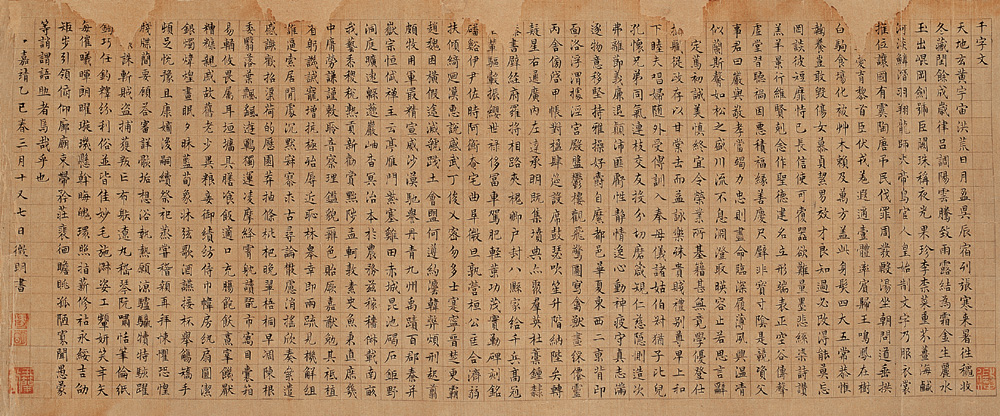 千字文
天地玄黃宇宙洪荒日月盈昃辰宿列張寒來暑往秋收
冬藏閏餘成歲律呂調陽雲騰致雨露結為霜金生麗水
玉出崐岡劍號巨闕珠稱夜光果珍李柰菜重芥薑海鹹
河淡鱗潛羽翔龍師火帝鳥官人皇始制文字乃服衣裳
推位讓國有虞陶唐弔民伐罪周發殷湯坐朝問道垂拱
愛育黎首臣伏戎羌遐邇壹體率賓歸王鳴鳳在樹
白駒食場化被艸木賴及萬方蓋此身髮四大五常恭惟
鞠養豈敢毀傷女慕貞絜男效才良知過必改得能莫忘
罔談彼短靡恃己長信使可覆器欲難量墨悲絲染詩讚
羔羊景行維賢剋念作聖德建名立形端表正空谷傳聲
虛堂習聽禍因惡積福緣善慶尺璧非寶寸陰是競資父
事君曰嚴與敬孝當竭力忠則盡命臨深履薄夙興溫凊
似蘭斯馨如松之盛川流不息淵澄取映容止若思言辭
定篤初誠美慎終宜令榮業所基籍甚無竟學優登仕
職從政存以甘棠去而益詠樂殊貴賤禮別尊卑上和
下睦夫唱婦隨外受傅訓入奉母儀諸姑伯叔猶子比兒
孔懷兄弟同氣連枝交友投分切磨箴規仁慈隱惻造次
弗離節義廉退顛沛匪虧性靜情逸心動神疲守真志滿
逐物意移堅持雅操好爵自縻都邑華夏東西二京背邙
面洛浮渭據涇宮殿盤鬱樓觀飛驚圖寫禽獸畫綵僊靈
丙舍傍啟甲帳對楹肆筵設席鼓瑟吹笙升階納陛弁轉
疑星右通廣內左達承明既集墳典亦聚群英杜稾鍾隸
書壁經府羅將相路夾槐卿戶封八縣家給千兵高冠
輦驅轂振纓世祿侈富車駕肥輕策功茂實勒碑刻銘
磻谿伊尹佐時阿衡奄宅曲阜微旦孰營桓公匡合濟弱
扶傾綺迴漢惠說感武丁俊乂密勿多士寔寧晉楚更霸
趙魏困橫假途滅虢踐土會盟何遵約灋韓弊煩刑起翦
頗牧用軍最精宣威沙漠馳譽丹青九州禹蹟百郡秦并
嶽宗恒岱禪主云亭雁門紫塞雞田赤城昆池碣石鉅野
洞庭曠遠緜邈巖岫杳冥治本於農務茲稼穡俶載南畝
我藝黍稷稅熟貢新勸賞黜陟孟軻敦素史魚秉直庶幾
中庸勞謙謹敕聆音察理鑑貌辨色貽厥嘉猷勉其祗植
省躬譏誡寵增抗極殆辱近恥林皋幸即兩疏見機解組
誰逼索居閒處沉默寂寥求古尋論散慮消遙欣奏累遣
慼謝歡招渠荷的歷園莽抽條枇杷晚翠梧桐早凋陳根
委翳落葉飄颻遊鵾獨運凌摩絳霄耽讀翫市寓目囊箱
易輶攸畏屬耳垣牆具膳飡飯適口充腸飽飫烹宰飢厭
糟糠親戚故舊老少異糧妾御績紡侍巾帷房紈扇圓潔
銀燭煒煌晝眠夕寐藍筍象床弦歌酒讌接杯舉觴矯手
頓足悅豫且康嫡後嗣續祭祀蒸嘗稽顙再拜悚懼恐惶
牋牒簡要顧答審詳骸垢想浴執熱願涼驢騾犢特駭躍
誅斬賊盜捕獲叛亡布射遼丸嵇琴阮嘯恬筆倫紙
鈞巧任釣釋紛利俗並皆佳妙毛施淑姿工顰妍笑年矢
每催曦暉朗曜璇璣懸斡晦魄環照指薪修祜永綏吉劭
矩步引領俯仰廊廟束帶矜莊裵徊瞻眺孤陋寡聞愚蒙
等誚謂語助者焉哉乎也
嘉靖乙巳春三月十又七日徵明書